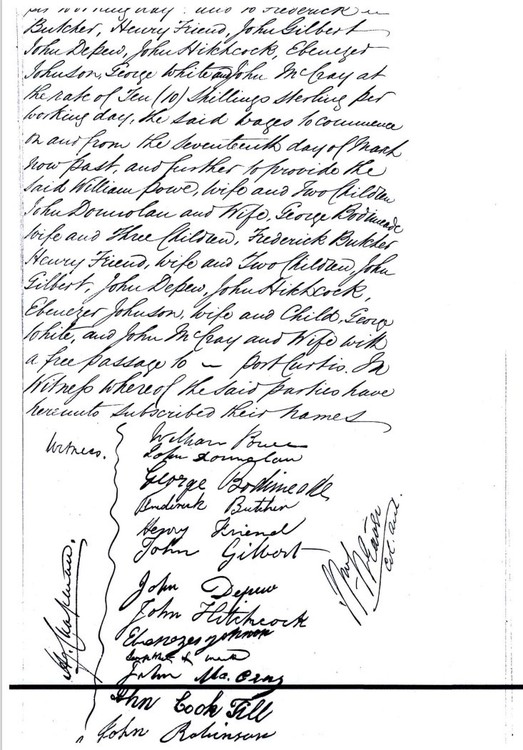 per working day: and to Frederick
Butcher, Henry Friend, John Gilbert
John Depew, John Hitchcock, Ebenezer
Johnson, George White and John McCray at
the rate of Ten (10) Shillings sterling per
working day, the said wages to commence
on and from the seventeenth day of March
now past, and further to provide the
said William Powe, wife and Two Children
John Donnolan and Wife, George Bodimeade
Wife and Three Children, Frederick Butcher
Henry Friend, wife and Two Children, John
Gilbert, John Depew, John Hitchcock,
Ebenezer Johnson, wife and Child, George
White, and John McCray and Wife with
a free passage to — Port Curtis. In
Witness whereof the said parties have
hereunto subscribed their names
Witness.
William
John Donnolan
George Bodimeade
Frederick Butcher
Henry Friend
John Gilbert
John Depew
John Hitchcock
Ebenezer Johnson
John Mc. Cray
John Cook Till
John Robinson
Chapman.